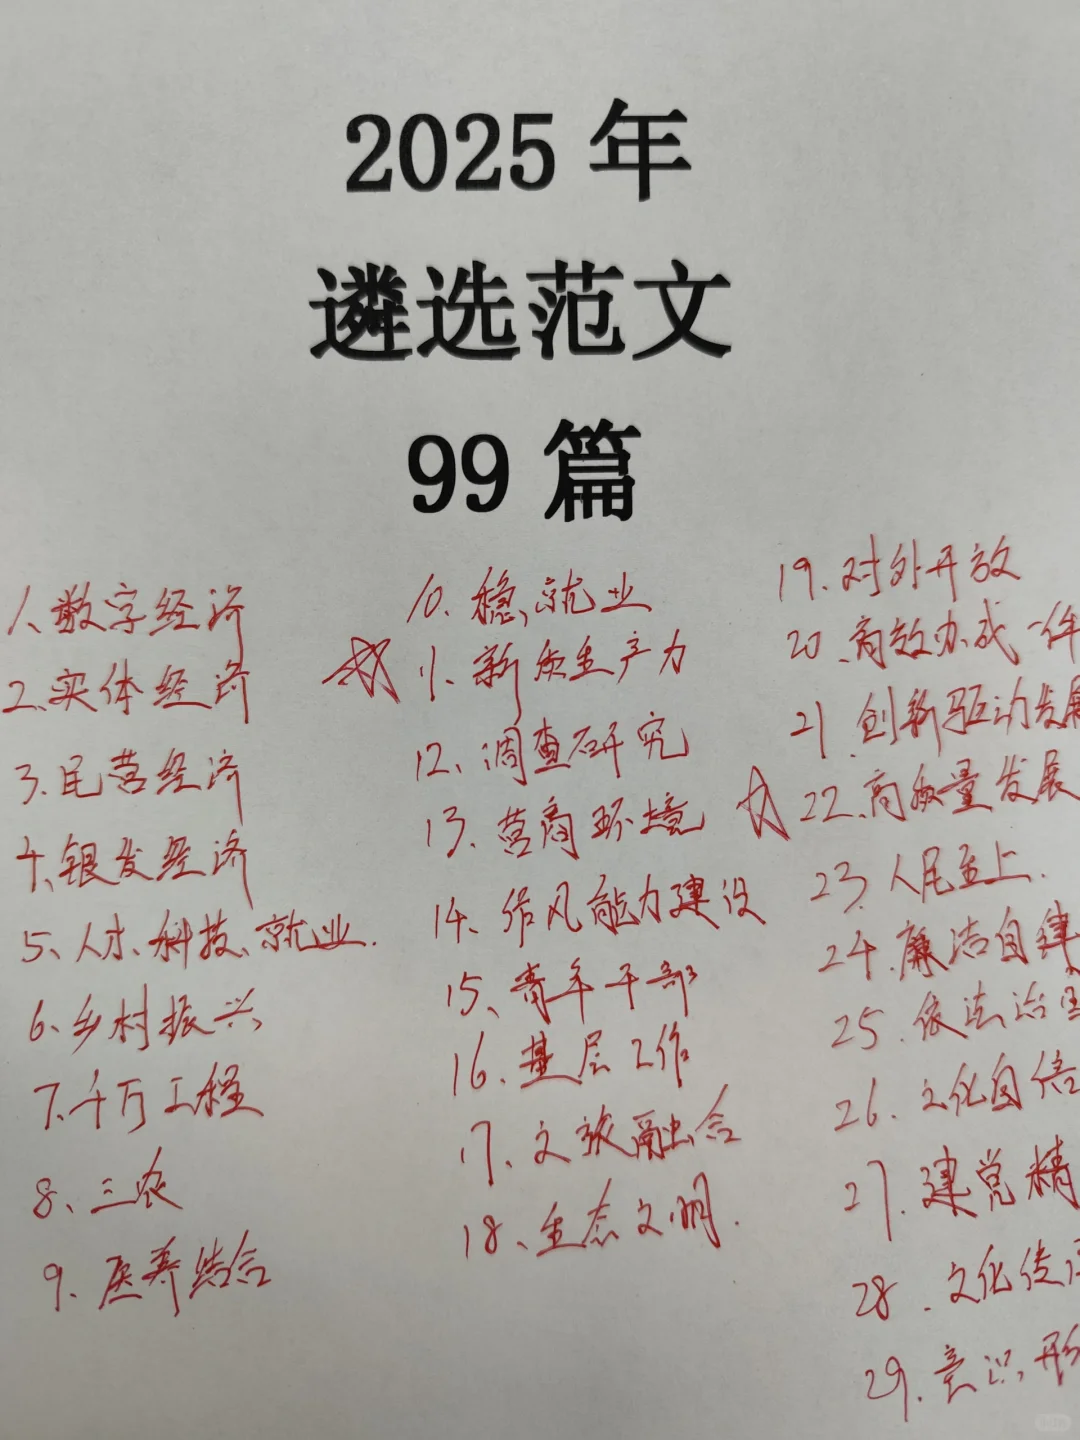 2025年
遴选范文
99篇
1、数字经济
2、实体经济
3、民营经济
4、银发经济
5、人才、科技、就业.
6、乡村振兴
7、千万工程
8、三农
9、医养结合
10、稳就业
11、新质生产力
12、调查研究
13、营商环境
14、作风能力建设
15、青年干部
16、基层工作
17、文旅融合
18、生态文明.
19、对外开放
20、高效办成一件
21、创新驱动发展
22、高质量发展
23、人民至上.
24、廉洁自律
25、依法治国
26、文化自信
27、建党精
28、文化传
29、意识形